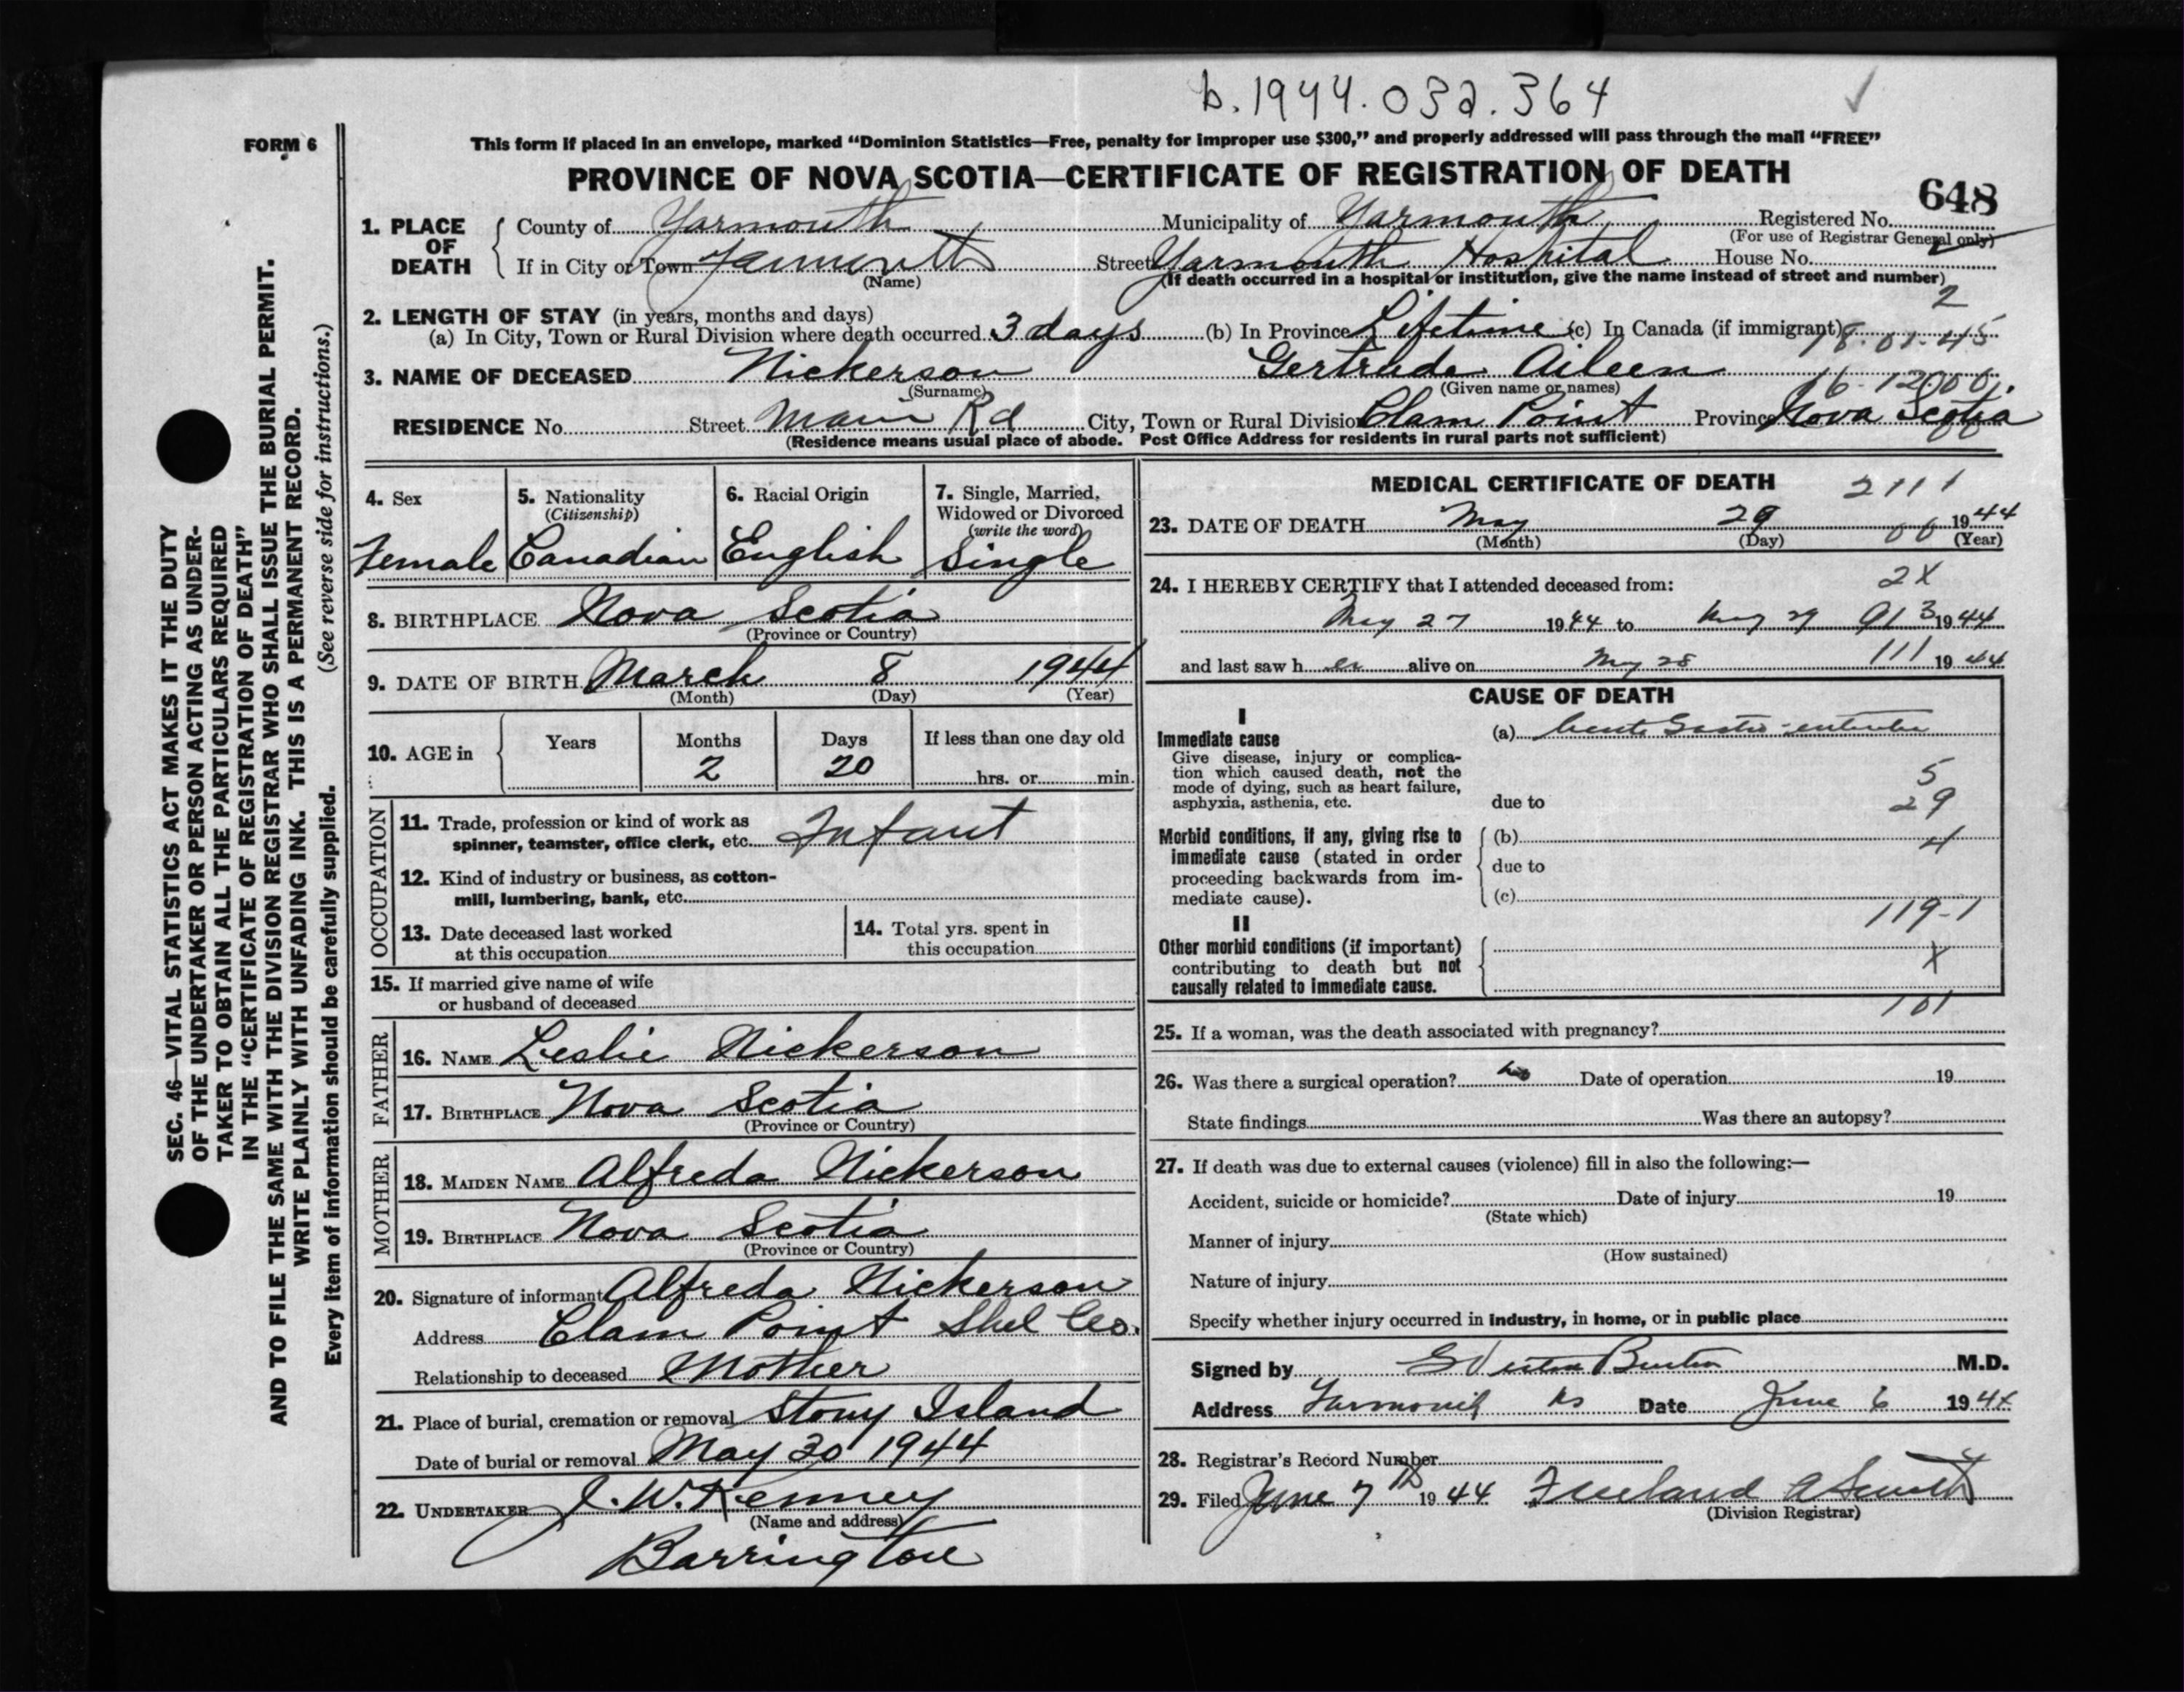 b. 1944.032.364
FORM 6
This form if placed in an envelope, marked "Dominion Statistics—Free, penalty for improper use $300," and properly addressed will pass through the mail "FREE"
PROVINCE OF NOVA SCOTIA—CERTIFICATE OF REGISTRATION OF DEATH
648
1. PLACE OF DEATH
County of Yarmouth Municipality of Yarmouth Registered No.
(For use of Registrar General only)
If in City or Town Yarmouth Street Yarmouth Hospital House No.
(Name) (If death occurred in a hospital or institution, give the name instead of street and number)
2
2. LENGTH OF STAY (in years, months and days)
(a) In City, Town or Rural Division where death occurred 3 days (b) In Province Lifetime (c) In Canada (if immigrant)
3. NAME OF DECEASED Nickerson Gertrude Aileen
(Surname) (Given name or names)
RESIDENCE No. Street Main Rd City, Town or Rural Division Clam Point Province Nova Scotia
(Residence means usual place of abode. Post Office Address for residents in rural parts not sufficient)
SEC. 46—VITAL STATISTICS ACT MAKES IT THE DUTY
OF THE UNDERTAKER OR PERSON ACTING AS UNDER-
TAKER TO OBTAIN ALL THE PARTICULARS REQUIRED
IN THE "CERTIFICATE OF REGISTRATION OF DEATH"
AND TO FILE THE SAME WITH THE DIVISION REGISTRAR WHO SHALL ISSUE THE BURIAL PERMIT.
WRITE PLAINLY WITH UNFADING INK. THIS IS A PERMANENT RECORD.
Every item of information should be carefully supplied. (See reverse side for instructions.)
4. Sex
Female
5. Nationality
(Citizenship)
Canadian
6. Racial Origin
English
7. Single, Married,
Widowed or Divorced
(write the word)
Single
8. BIRTHPLACE Nova Scotia
(Province or Country)
9. DATE OF BIRTH March 8 1944
(Month) (Day) (Year)
10. AGE in Years Months Days If less than one day old
2 20 hrs. or min.
OCCUPATION
11. Trade, profession or kind of work as
spinner, teamster, office clerk, etc. Infant
12. Kind of industry or business, as cotton-
mill, lumbering, bank, etc.
13. Date deceased last worked
at this occupation
14. Total yrs. spent in
this occupation
15. If married give name of wife
or husband of deceased
FATHER
16. NAME Leslie Nickerson
17. BIRTHPLACE Nova Scotia
(Province or Country)
MOTHER
18. MAIDEN NAME Alfreda Nickerson
19. BIRTHPLACE Nova Scotia
(Province or Country)
20. Signature of informant Alfreda Nickerson
Address Clam Point Shel Co.
Relationship to deceased Mother
21. Place of burial, cremation or removal Stony Island
Date of burial or removal May 30 1944
22. UNDERTAKER J. W. Kenney
(Name and address)
Barrington
MEDICAL CERTIFICATE OF DEATH
2111
23. DATE OF DEATH May 29 1944
(Month) (Day) (Year)
24. I HEREBY CERTIFY that I attended deceased from:
2X
May 27 1944 to May 29 913 1944
and last saw her alive on May 28 111 1944
CAUSE OF DEATH
I
Immediate cause
Give disease, injury or complica-
tion which caused death, not the
mode of dying, such as heart failure,
asphyxia, asthenia, etc.
(a) Acute Gastro-enteritis
5
29
due to
Morbid conditions, if any, giving rise to
immediate cause (stated in order
proceeding backwards from im-
mediate cause).
(b) 4
due to
(c)
119-1
II
Other morbid conditions (if important)
contributing to death but not
causally related to immediate cause.
X
101
25. If a woman, was the death associated with pregnancy?
26. Was there a surgical operation? no Date of operation 19
State findings Was there an autopsy?
27. If death was due to external causes (violence) fill in also the following:—
Accident, suicide or homicide? Date of injury 19
(State which)
Manner of injury
(How sustained)
Nature of injury
Specify whether injury occurred in industry, in home, or in public place
Signed by Burton M.D.
Address Yarmouth NS Date June 6 1944
28. Registrar's Record Number
29. Filed June 7th 1944 Freeland A Smith
(Division Registrar)